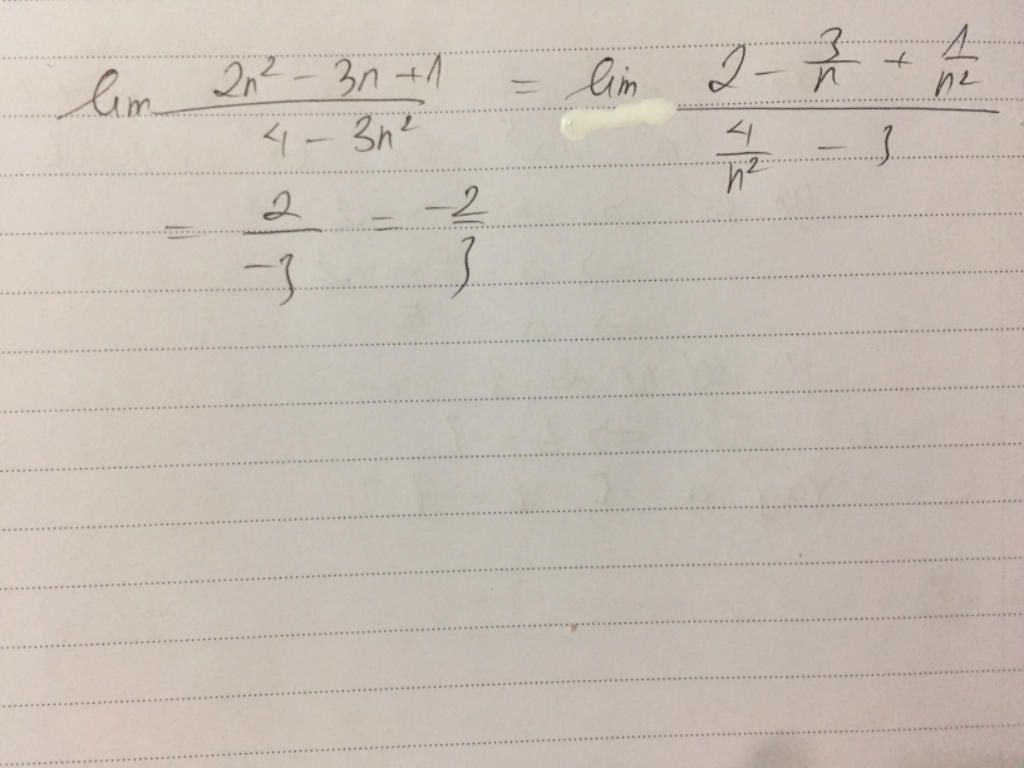 lim (2n² - 3n + 1)/(4 - 3n²) = lim (2 - 3/n + 1/n²)/(4/n² - 3)
= 2/-3 = -2/3